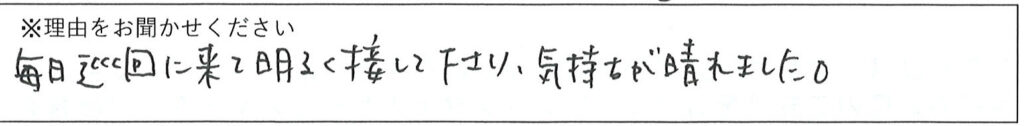 ※理由をお聞かせください
毎日巡回に来て明るく接して下さり、気持ちが晴れました。